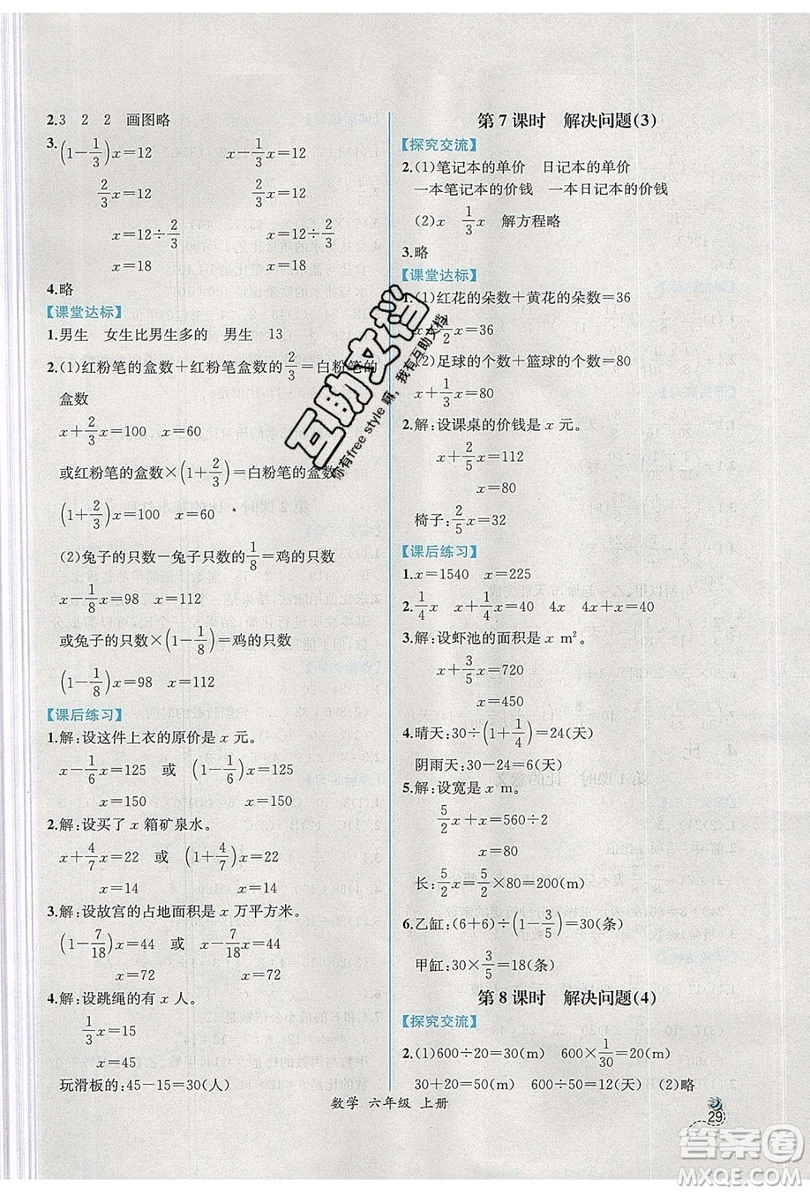 2.3 2 2 画图略
3.(1-1/3)x=12 x-1/3x=12
2/3x=12 2/3x=12
x=12÷2/3 x=12÷2/3
x=18 x=18
4.略
【课堂达标】
1.男生 女生比男生多的 男生 13
2.(1)红粉笔的盒数+红粉笔盒数的2/3=白粉笔的
盒数
x+2/3x=100 x=60
或红粉笔的盒数×(1+2/3)=白粉笔的盒数
(1+2/3)x=100 x=60
(2)兔子的只数-兔子只数的1/8=鸡的只数
x-1/8x=98 x=112
或兔子的只数×(1-1/8)=鸡的只数
(1-1/8)x=98 x=112
【课后练习】
1.解:设这件上衣的原价是 x 元。
x-1/6x=125 或 (1-1/6)x=125
x=150 x=150
2.解:设买了 x 箱矿泉水。
x+4/7x=22 或 (1+4/7)x=22
x=14 x=14
3.解:设故宫的占地面积是 x 万平方米。
(1-7/18)x=44 或 x-7/18x=44
x=72 x=72
4.解:设跳绳的有 x 人。
1/3x=15
x=45
玩滑板的:45-15=30(人)
第 7 课时 解决问题(3)
【探究交流】
2.(1)笔记本的单价 日记本的单价
一本笔记本的价钱 一本日记本的价钱
(2)x 1/3x 解方程略
3.略
【课堂达标】
1.(1)红花的朵数+黄花的朵数=36
x=36
(2)足球的个数+篮球的个数=80
x+1/3x=80
2.解:设课桌的价钱是 x 元。
x+2/5x=112
x=80
椅子:2/5x=32
【课后练习】
1.x=1540 x=225
2.1/4x x+1/4x=40 4x 4x+x=40
3.解:设虾池的面积是 x m²。
x+3/5x=720
x=450
4.晴天:30÷(1+1/4)=24(天)
阴雨天:30-24=6(天)
5.解:设宽是 x m。
5/2x+x=560÷2
x=80
长:5/2x=5/2×80=200(m)
6.乙缸:(6+6)÷(1-3/5)=30(条)
甲缸:30×3/5=18(条)
第 8 课时 解决问题(4)
【探究交流】
2.(1)600÷20=30 600×1/30=20
30+20=50 600÷50=12(天) (2)略
数学 六年级 上册
29
互助文档
你有free style 嘛，我有互助文档
答案圈
MXQE.COM